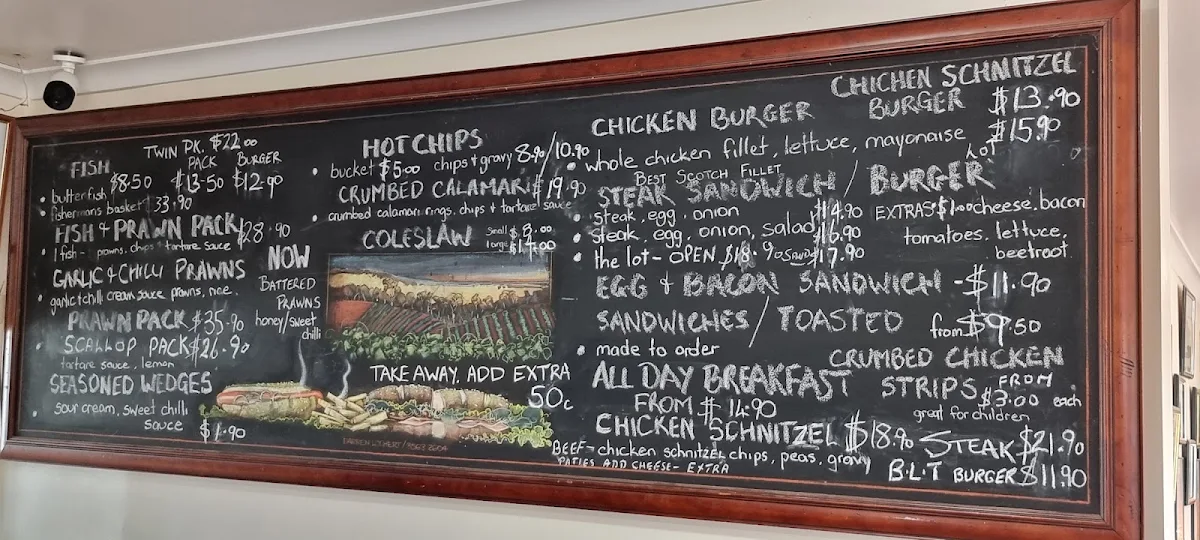 TWIN PK. $22.00
FISH PACK BURGER
• butterfish $8.50 $13-50 $12.90
• fishermans basket 33.90
FISH & PRAWN PACK $28.90
• 1 fish - prawns, chips tartare sauce
GARLIC & CHILLI PRAWNS
• garlic & chilli cream sauce prawns, rice.
PRAWN PACK $35.90
• SCALLOP PACK $26.90
tartare sauce, lemon
SEASONED WEDGES
• sour cream, sweet chilli
sauce
NOW
BATTERED
PRAWNS
honey/sweet
chilli
HOT CHIPS
• bucket $5.00 chips & gravy 8.90/10.90
CRUMBED CALAMARI $19.90
• crumbed calamari rings, chips & tartare sauce
COLESLAW
Small
large
TAKE AWAY. ADD EXTRA
50c
CHICHEN SCHNITZEL
BURGER $13.90
CHICKEN BURGER $15.90
• whole chicken fillet, lettuce, mayonaise
BEST SCOTCH FILLET
STEAK SANDWICH / BURGER
LOT
• steak, egg, onion $14.90
• steak, egg, onion, salad $16.90
• the lot - OPEN $18.90 SAND $17.90
EXTRAS $1.00 cheese, bacon
tomatoes, lettuce,
beetroot
EGG & BACON SANDWICH - $11.90
SANDWICHES / TOASTED from $9.50
• made to order
ALL DAY BREAKFAST
FROM $14.90
CRUMBED CHICKEN
STRIPS FROM $3.00 each
great for children
CHICKEN SCHNITZEL $18.90
- chicken schnitzel chips, peas, gravy
BEEF
PATIES ADD CHEESE - EXTRA
STEAK $21.90
B.L.T BURGER $11.90